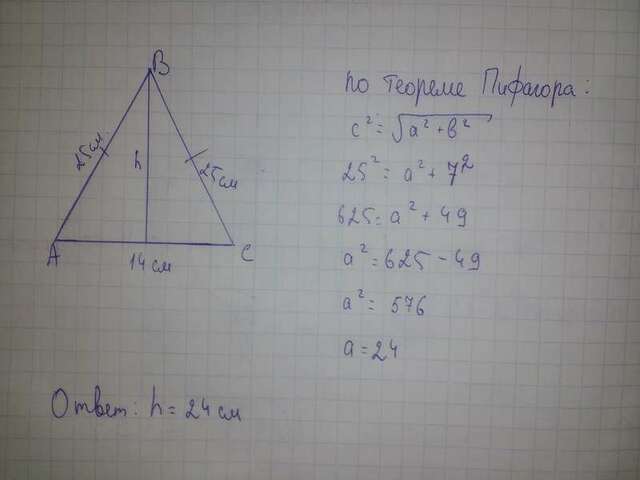 B
25см
h
25см
A
C
14 см
по теореме Пифагора:
c² = √a² + b²
25² = a² + 7²
625 = a² + 49
a² = 625 - 49
a² = 576
a = 24
Ответ: h = 24 см